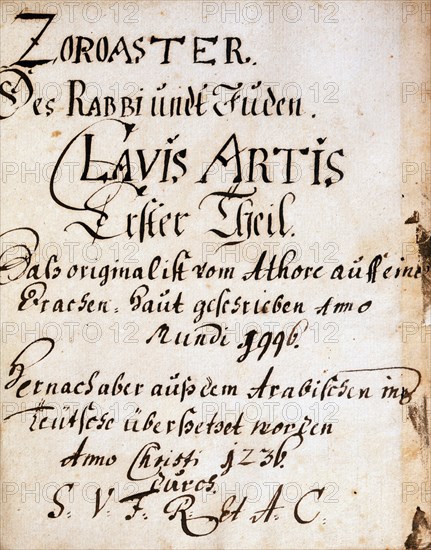 ZOROASTER.
Des RABBI undt Juden.
CLAVIS ARTIS
Erster Theil.
Daß original ist vom Athore auff eine
Trachen-haut geschrieben Anno
Mundi 1996.
Hernach aber auß dem Arabischen inß
Teütsche übersetzet worden
Anno Christi 1236.
Durch.
S. V. F. R. et A. C.